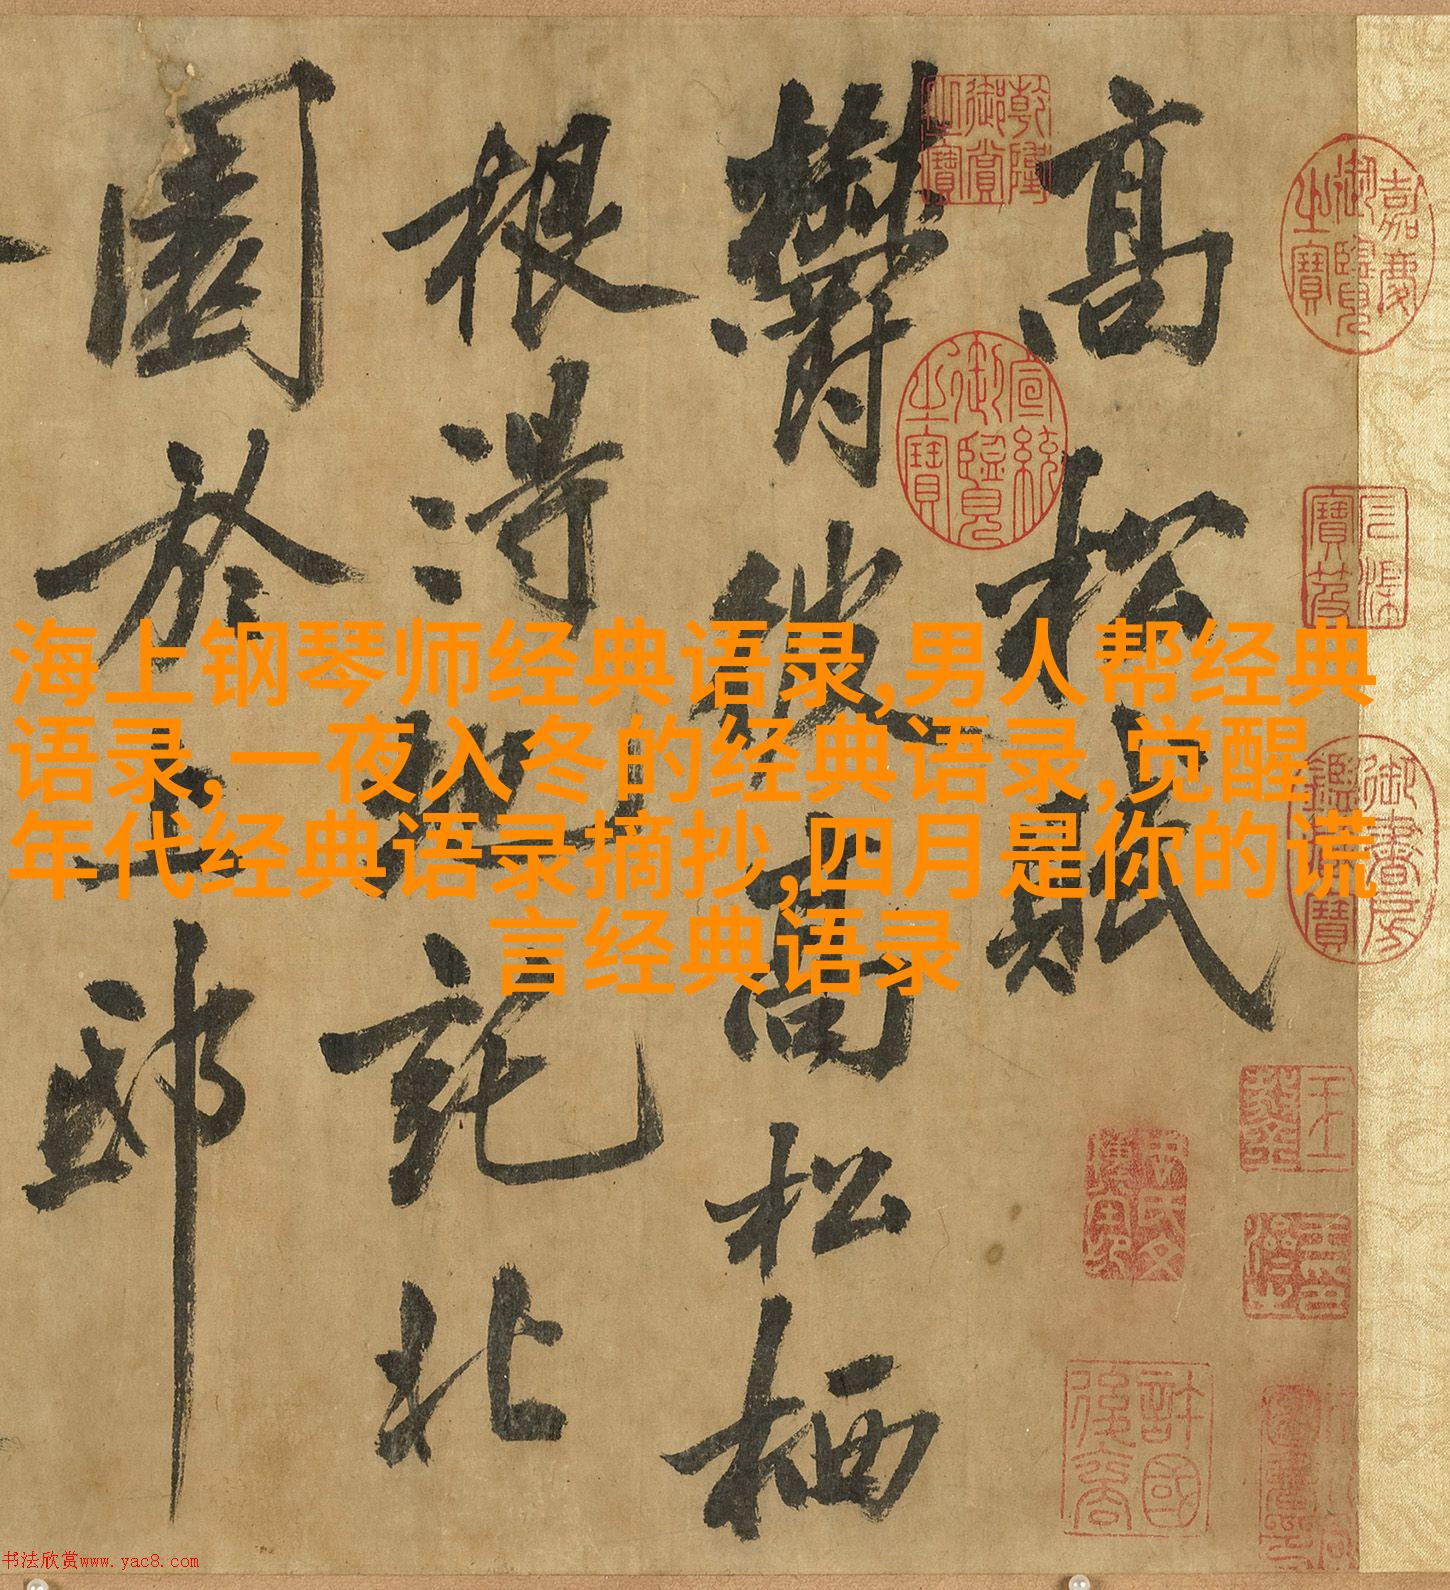 海上钢琴师经典语录,男人帮经典
语录,一夜入冬的经典语录,觉醒
年代经典语录摘抄,四月是你的谎
言经典语录
高松賦
鬱彼高松栖
根得地託北
園於上邸
乾隆御賞之寶
嘉慶御覽之寶
宣統御覽之寶
石渠寶笈
御書房鑑藏寶
許國後裔
书法欣赏www.yac8.com